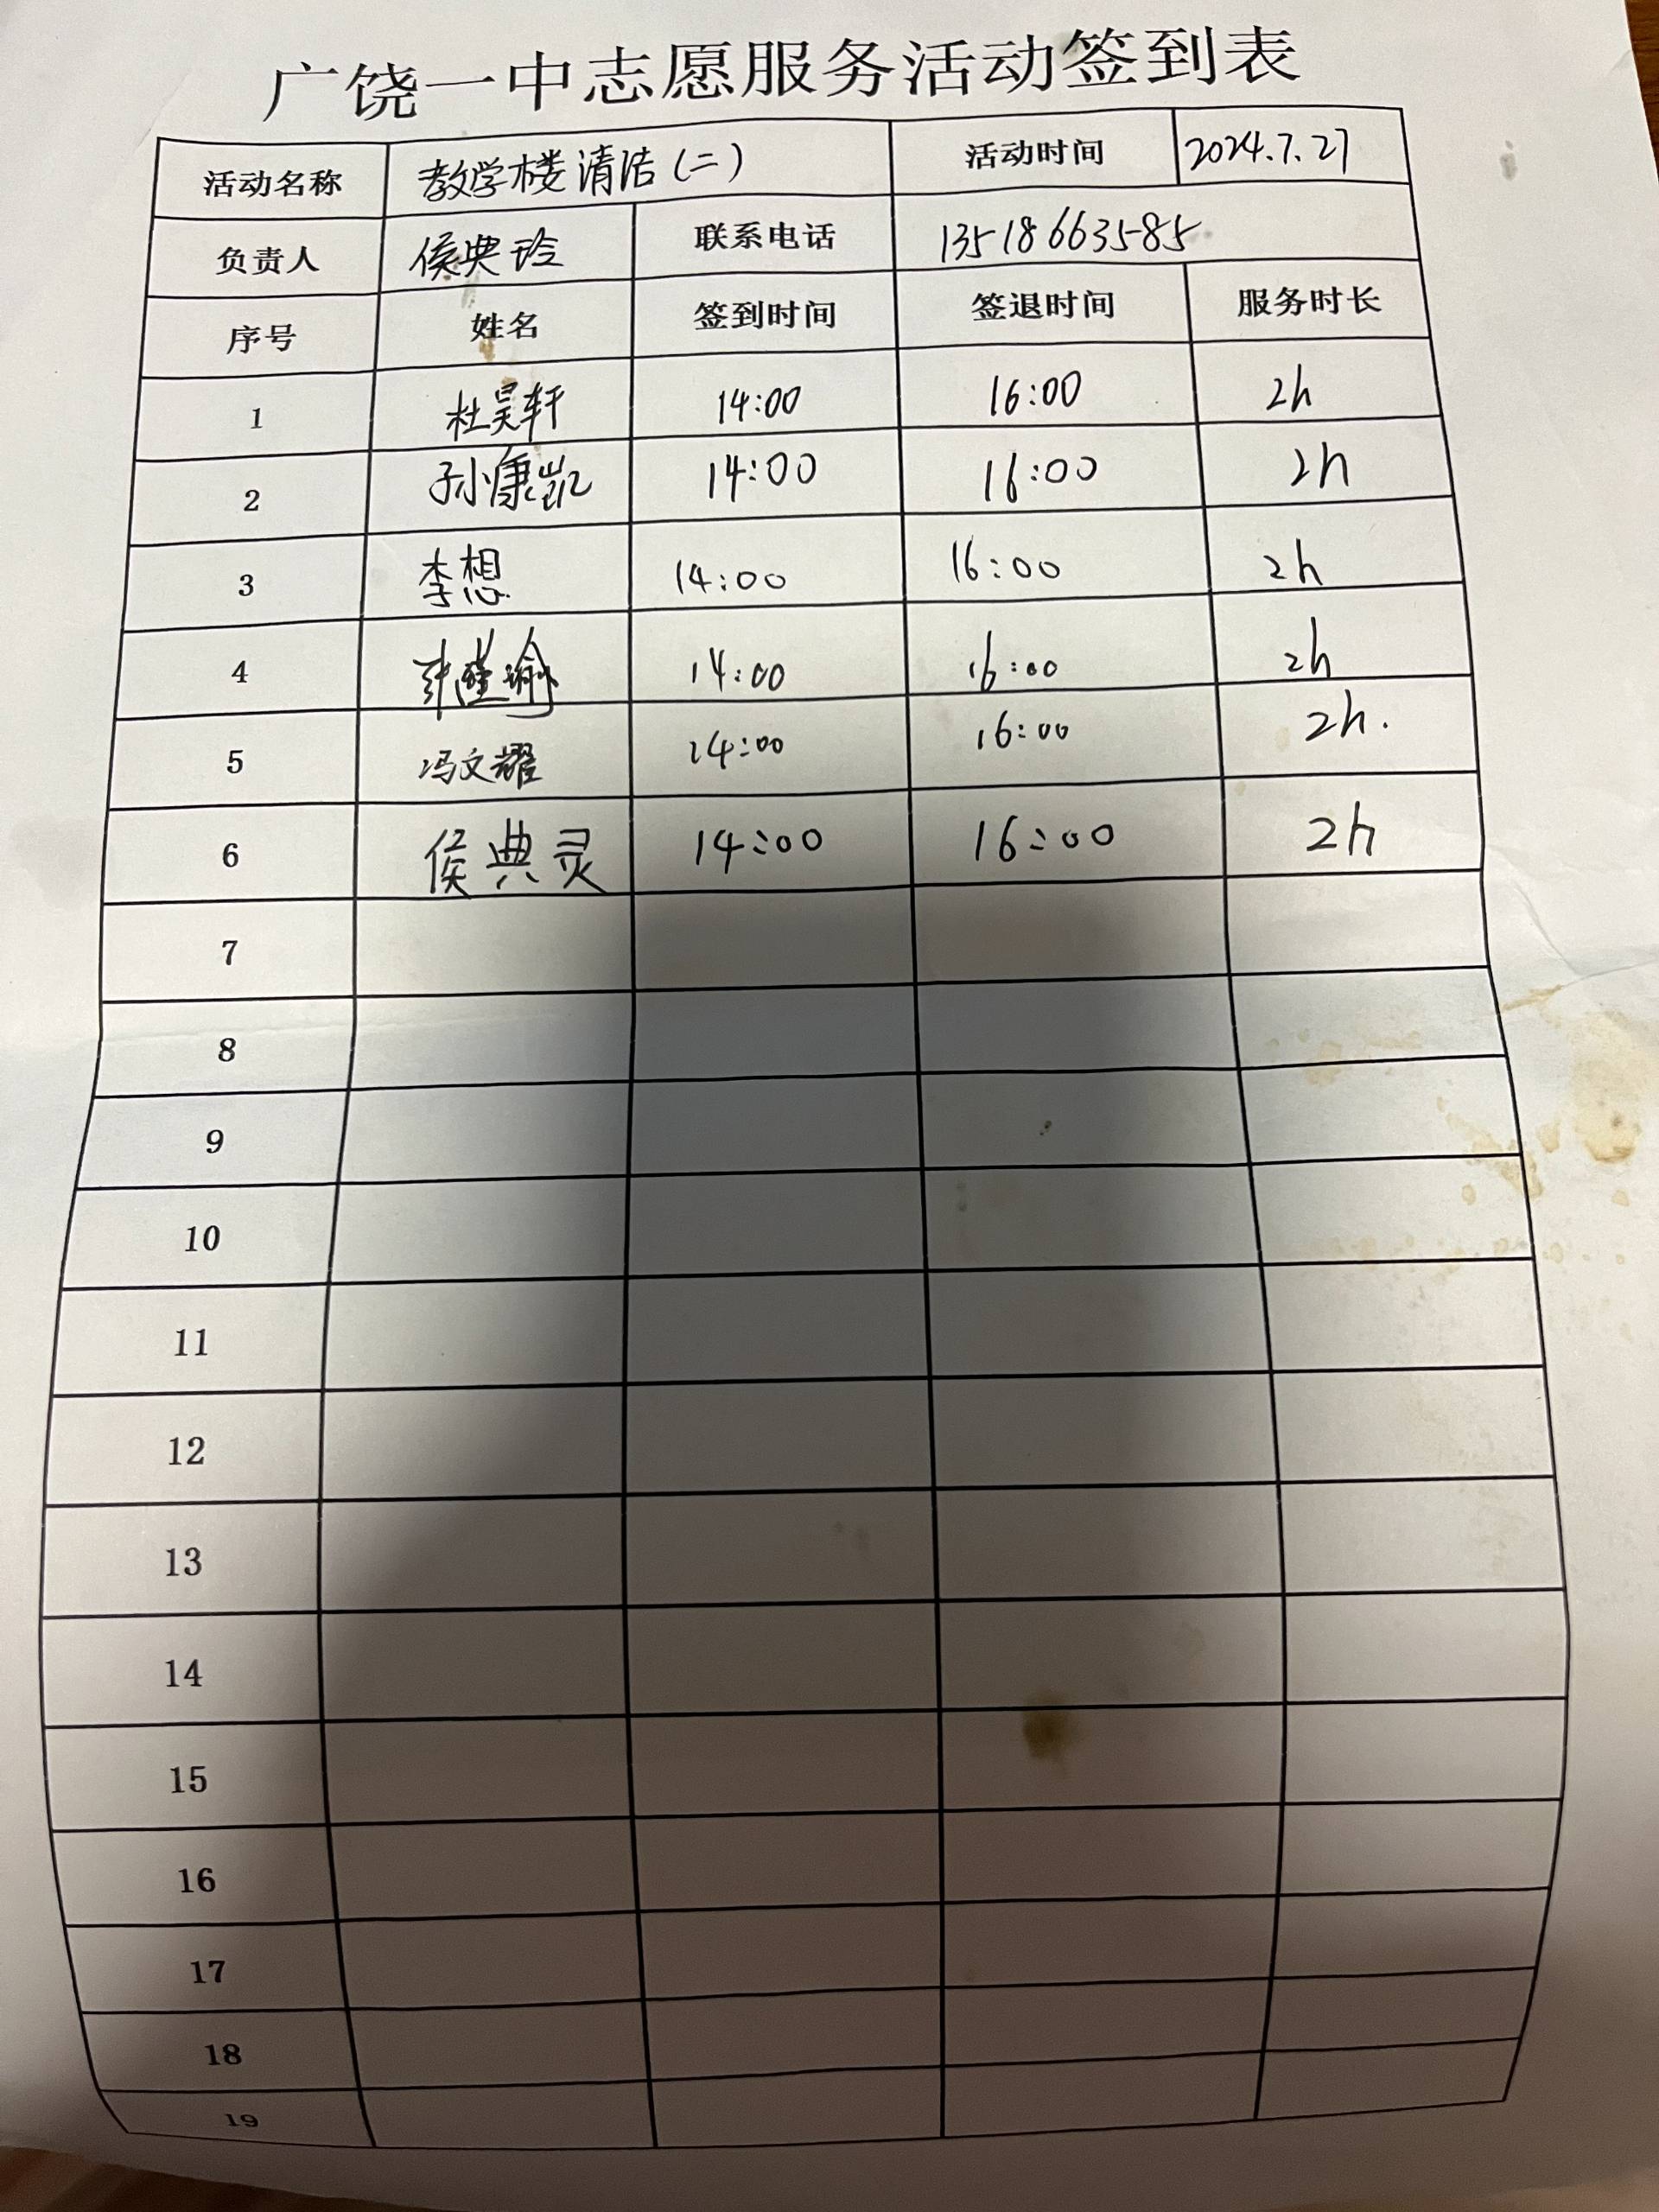 广饶一中志愿服务活动签到表
活动名称 教学楼清洁(二) 活动时间 2024.7.27
负责人 侯典玲 联系电话 13518663585
序号 姓名 签到时间 签退时间 服务时长
1 杜昊轩 14:00 16:00 2h
2 孙康凯 14:00 16:00 2h
3 李想 14:00 16:00 2h
4 14:00 16:00 2h
5 冯文耀 14:00 16:00 2h.
6 侯典灵 14:00 16:00 2h
7
8
9
10
11
12
13
14
15
16
17
18
19